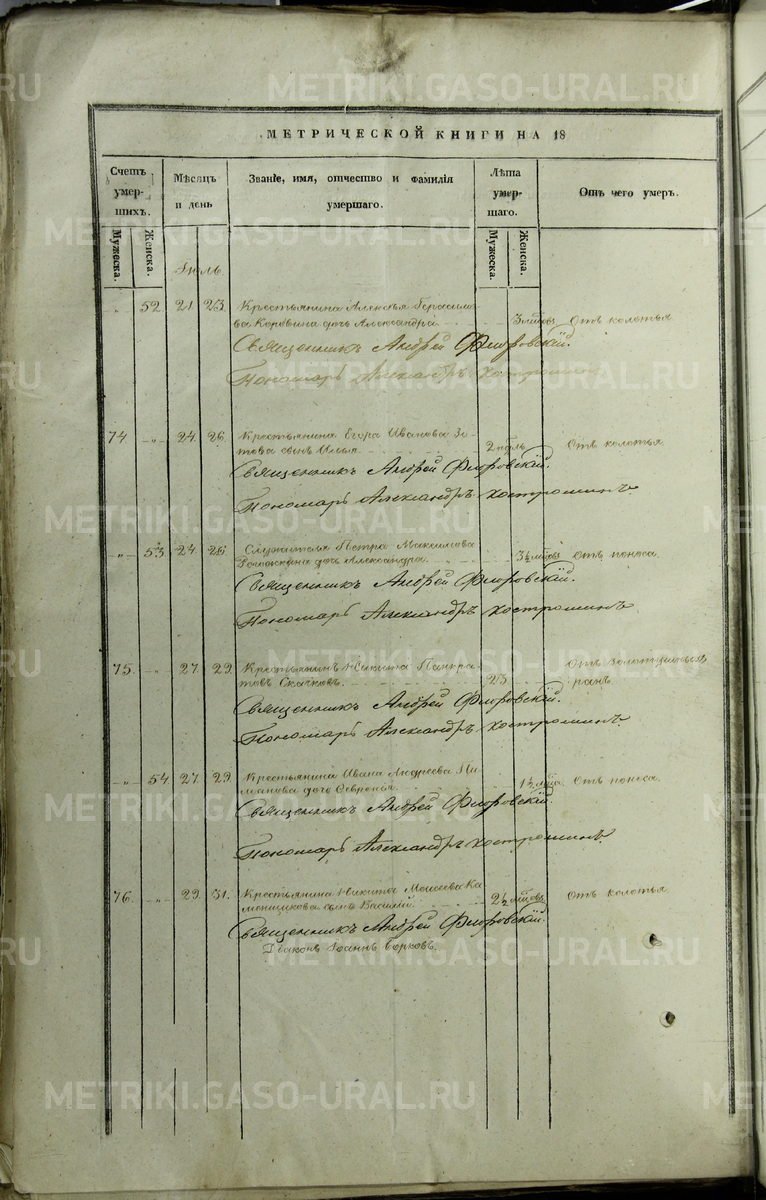 METRIKI.GASO-URAL.RU
МЕТРИЧЕСКОЙ КНИГИ НА 18
Счетъ умершихъ.
Мѣсяцъ и день
Званіе, имя, отчество и фамилія умершаго.
Лѣта умершаго.
Отъ чего умеръ.
Мужеска.
Женска.
Мужеска.
Женска.
Іюль.
„ 52 21 23 Крестьянина Алексѣя Герасимо- 3 мѣсяц. Отъ колотья
ва Коровина дочь Александра
Священникъ Андрей Флоровскій.
Пономарь Александръ Костроминъ
74 „ 24 26 Крестьянина Егора Иванова Зо- 2 недѣль Отъ колотья
това сынъ Илья
Священникъ Андрей Флоровскій.
Пономарь Александръ Костроминъ
„ 53 24 26 Служителя Петра Максимова 3½ мѣсяц. Отъ поноса.
дочь Александра
Священникъ Андрей Флоровскій.
Пономарь Александръ Костроминъ
75. „ 27 29 Крестьянинъ Никита Панкра- 23 Отъ золотушныхъ
товъ Скачковъ. ранъ.
Священникъ Андрей Флоровскій.
Пономарь Александръ Костроминъ.
„ 54 27 29 Крестьянина Ивана Андреева Пи- 1½ мѣсяца Отъ поноса.
манова дочь Февронья
Священникъ Андрей Флоровскій.
Пономарь Александръ Костроминъ.
76. „ 29 31. Крестьянина Никиты Моисеева Ка- 2½ мѣсяц. Отъ колотья
менщикова сынъ Василій
Священникъ Андрей Флоровскій.
Діаконъ Іоаннъ Борковъ.